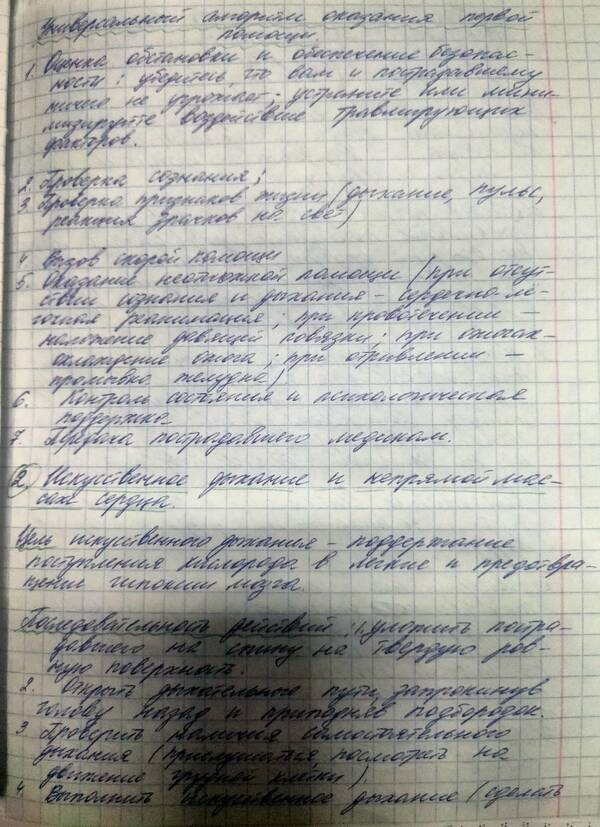 Универсальный алгоритм оказания первой
помощи.
1. Оценка обстановки и обеспечение безопас-
ности: убедитесь, что вам и пострадавшему
ничего не угрожает - устраните или мини-
мизируйте воздействие травмирующих
факторов.
2. Проверка сознания;
3. Проверка признаков жизни (дыхание, пульс,
реакция зрачков на свет)
4 Вызов скорой помощи
5. Оказание неотложной помощи (при отсут-
ствии сознания и дыхания - сердечно-ле-
гочная реанимация; при кровотечении -
наложение давящей повязки; при ожогах-
охлаждение ожога; при отравлении -
промывка желудка)
6. Контроль состояния и психологическая
поддержка
7. Передача пострадавшего медикам.
2) Искуственное дыхание и непрямой мас-
саж сердца.
Цель искуственного дыхания - поддержание
поступления кислорода в легкие и предотвра-
щение гипоксии мозга.
Последовательность действий: 1. уложить постра-
давшего на спину на твердую ров-
ную поверхность.
2. Открыть дыхательного пути, запрокинув
голову назад и приподняв подбородок.
3 Проверить наличия самостоятельного
дыхания (прислушаться, посмотреть на
движение грудной клетки)
4. Выполнить искуственное дыхание (сделать